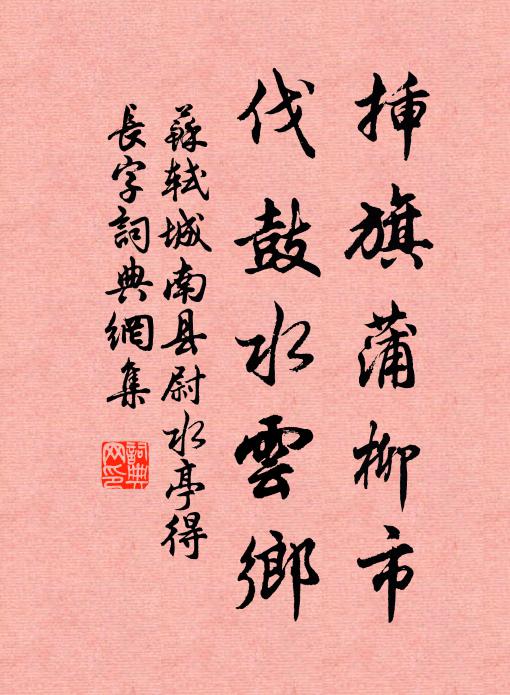 揷旗蒲柳市
伐鼓水雲鄉
蘇軾城南县尉水亭得
長字詞典網集
詞典
网印